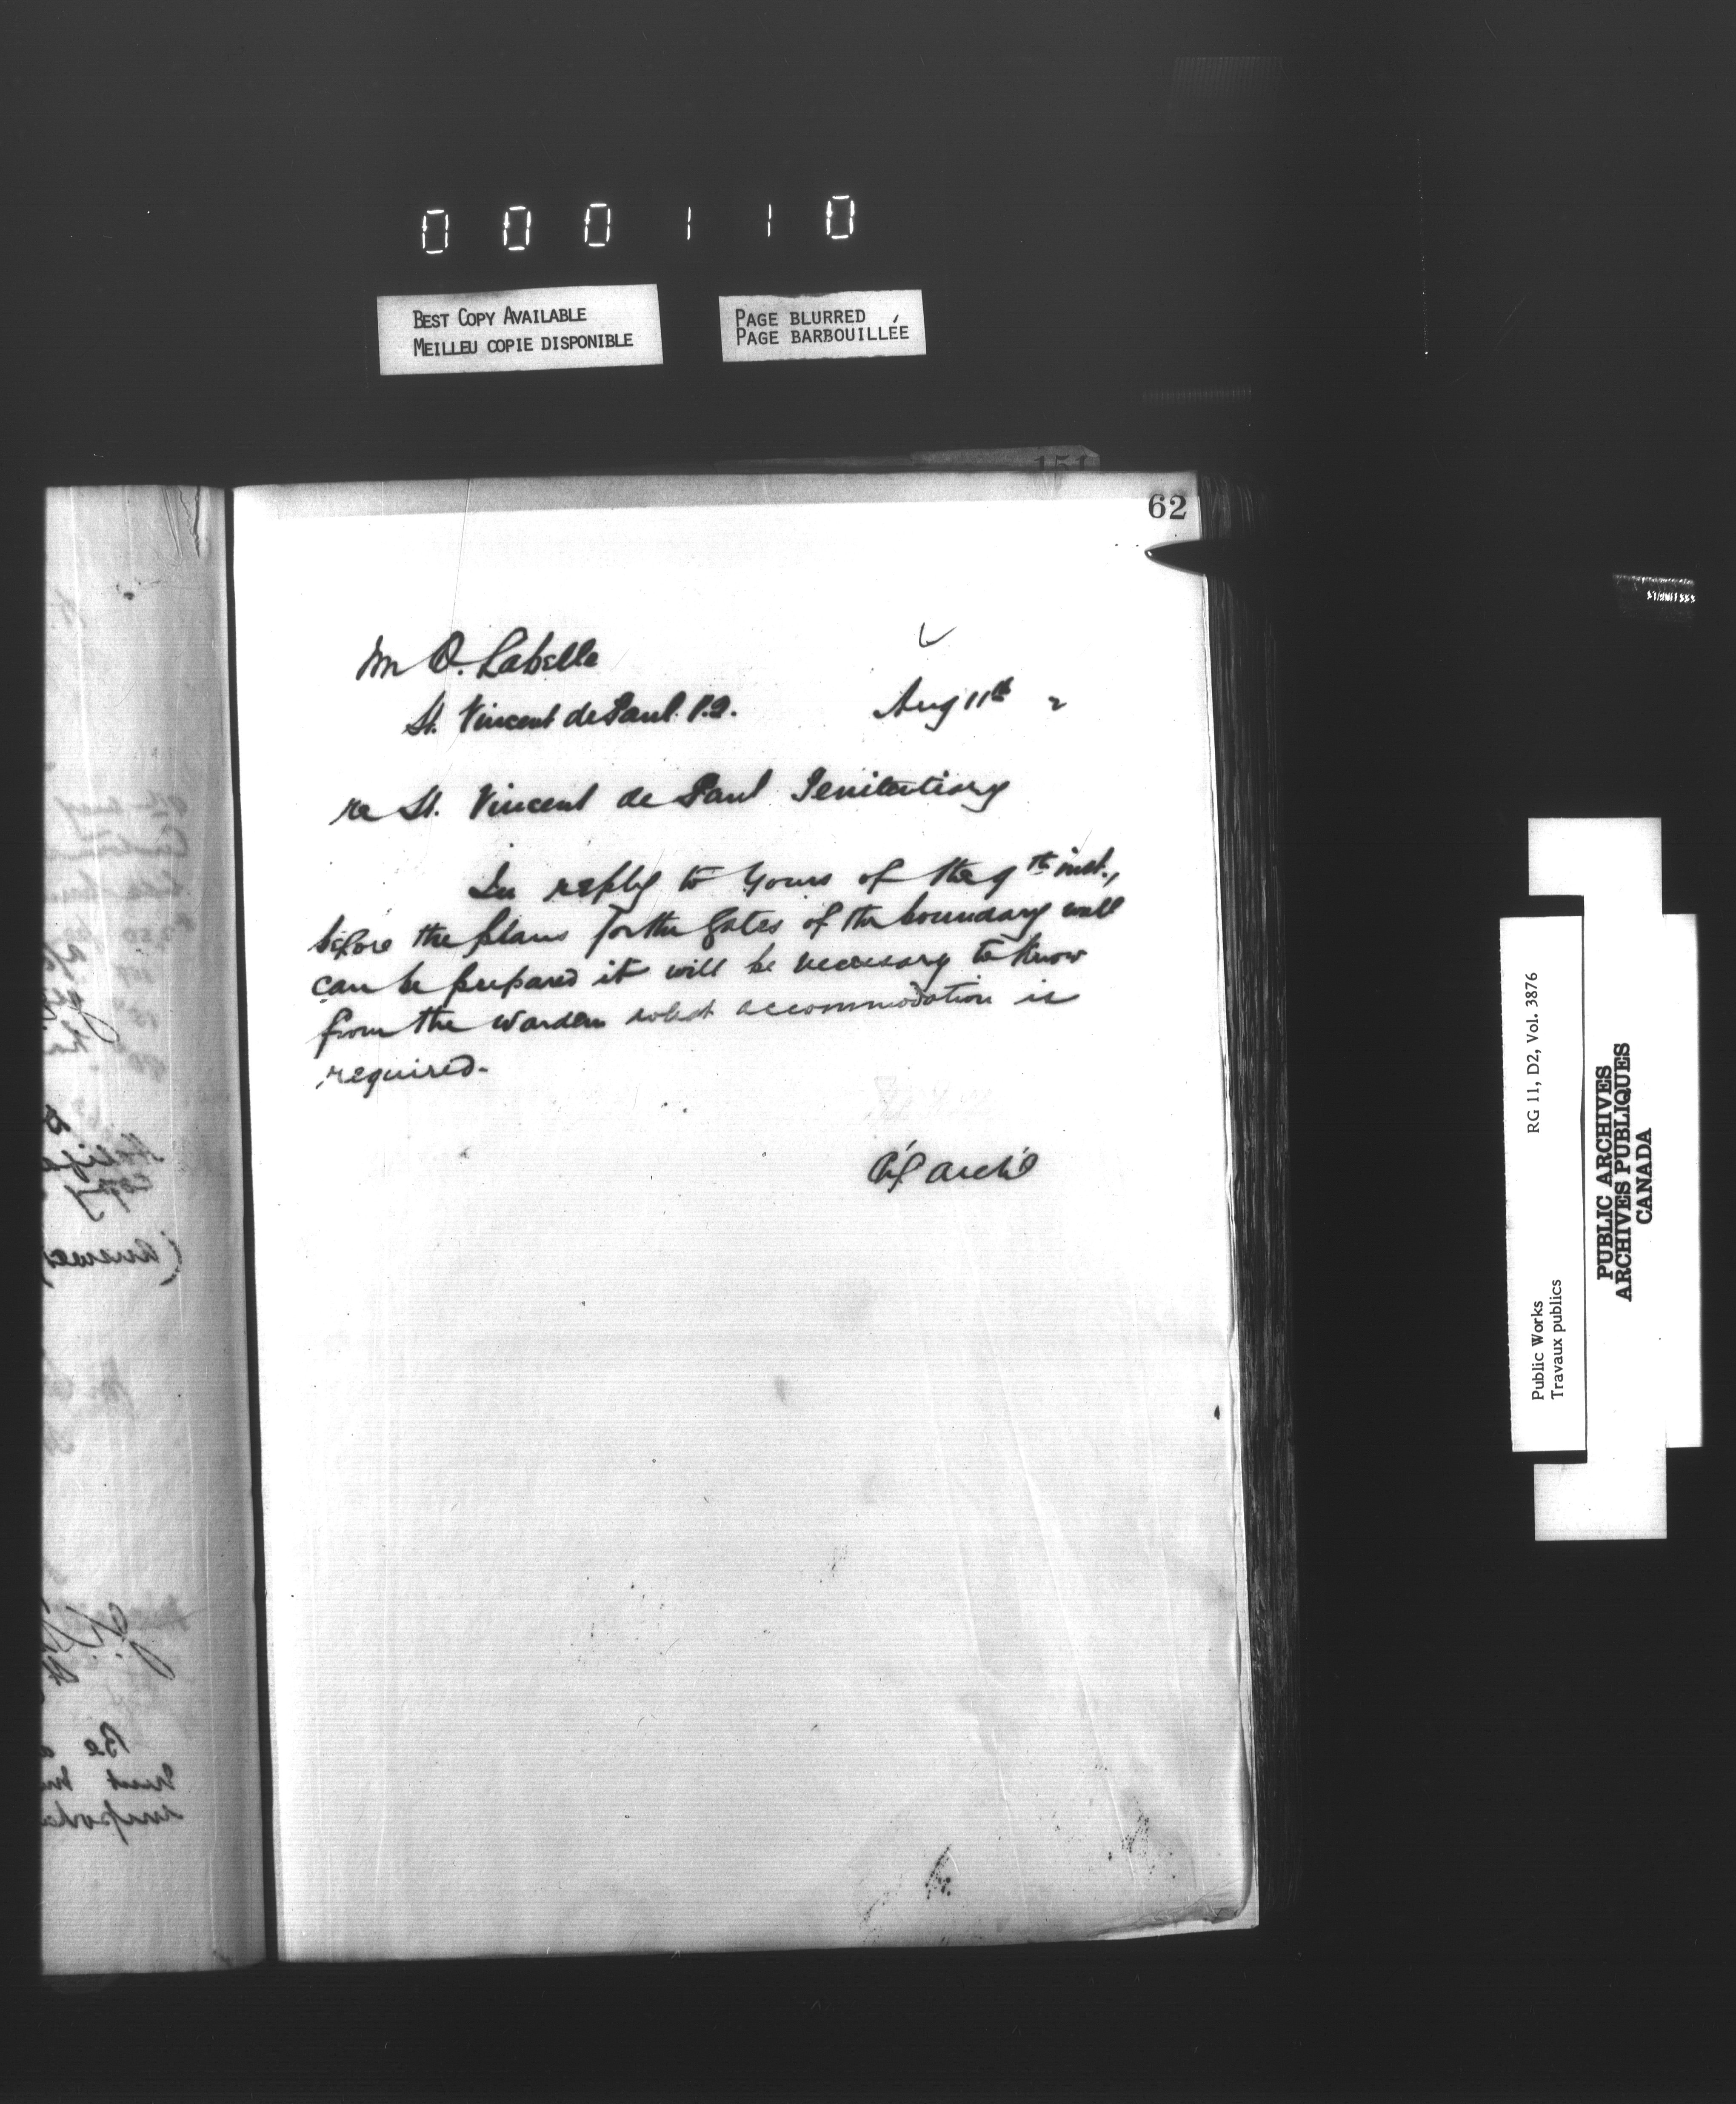 000110
BEST COPY AVAILABLE
MEILLEU COPIE DISPONIBLE
PAGE BLURRED
PAGE BARBOUILLÉE
151
62
Mr O. Labelle
St. Vincent de Paul. P.Q.
Aug 11th 2
re St. Vincent de Paul Penitentiary
In reply to yours of the 9th inst.,
before the plans for the gates of the boundary wall
can be prepared it will be necessary to know
from the warden what accommodation is
required.
Ch'f Arch't
RG 11, D2, Vol. 3876
Public Works
Travaux publics
PUBLIC ARCHIVES
ARCHIVES PUBLIQUES
CANADA